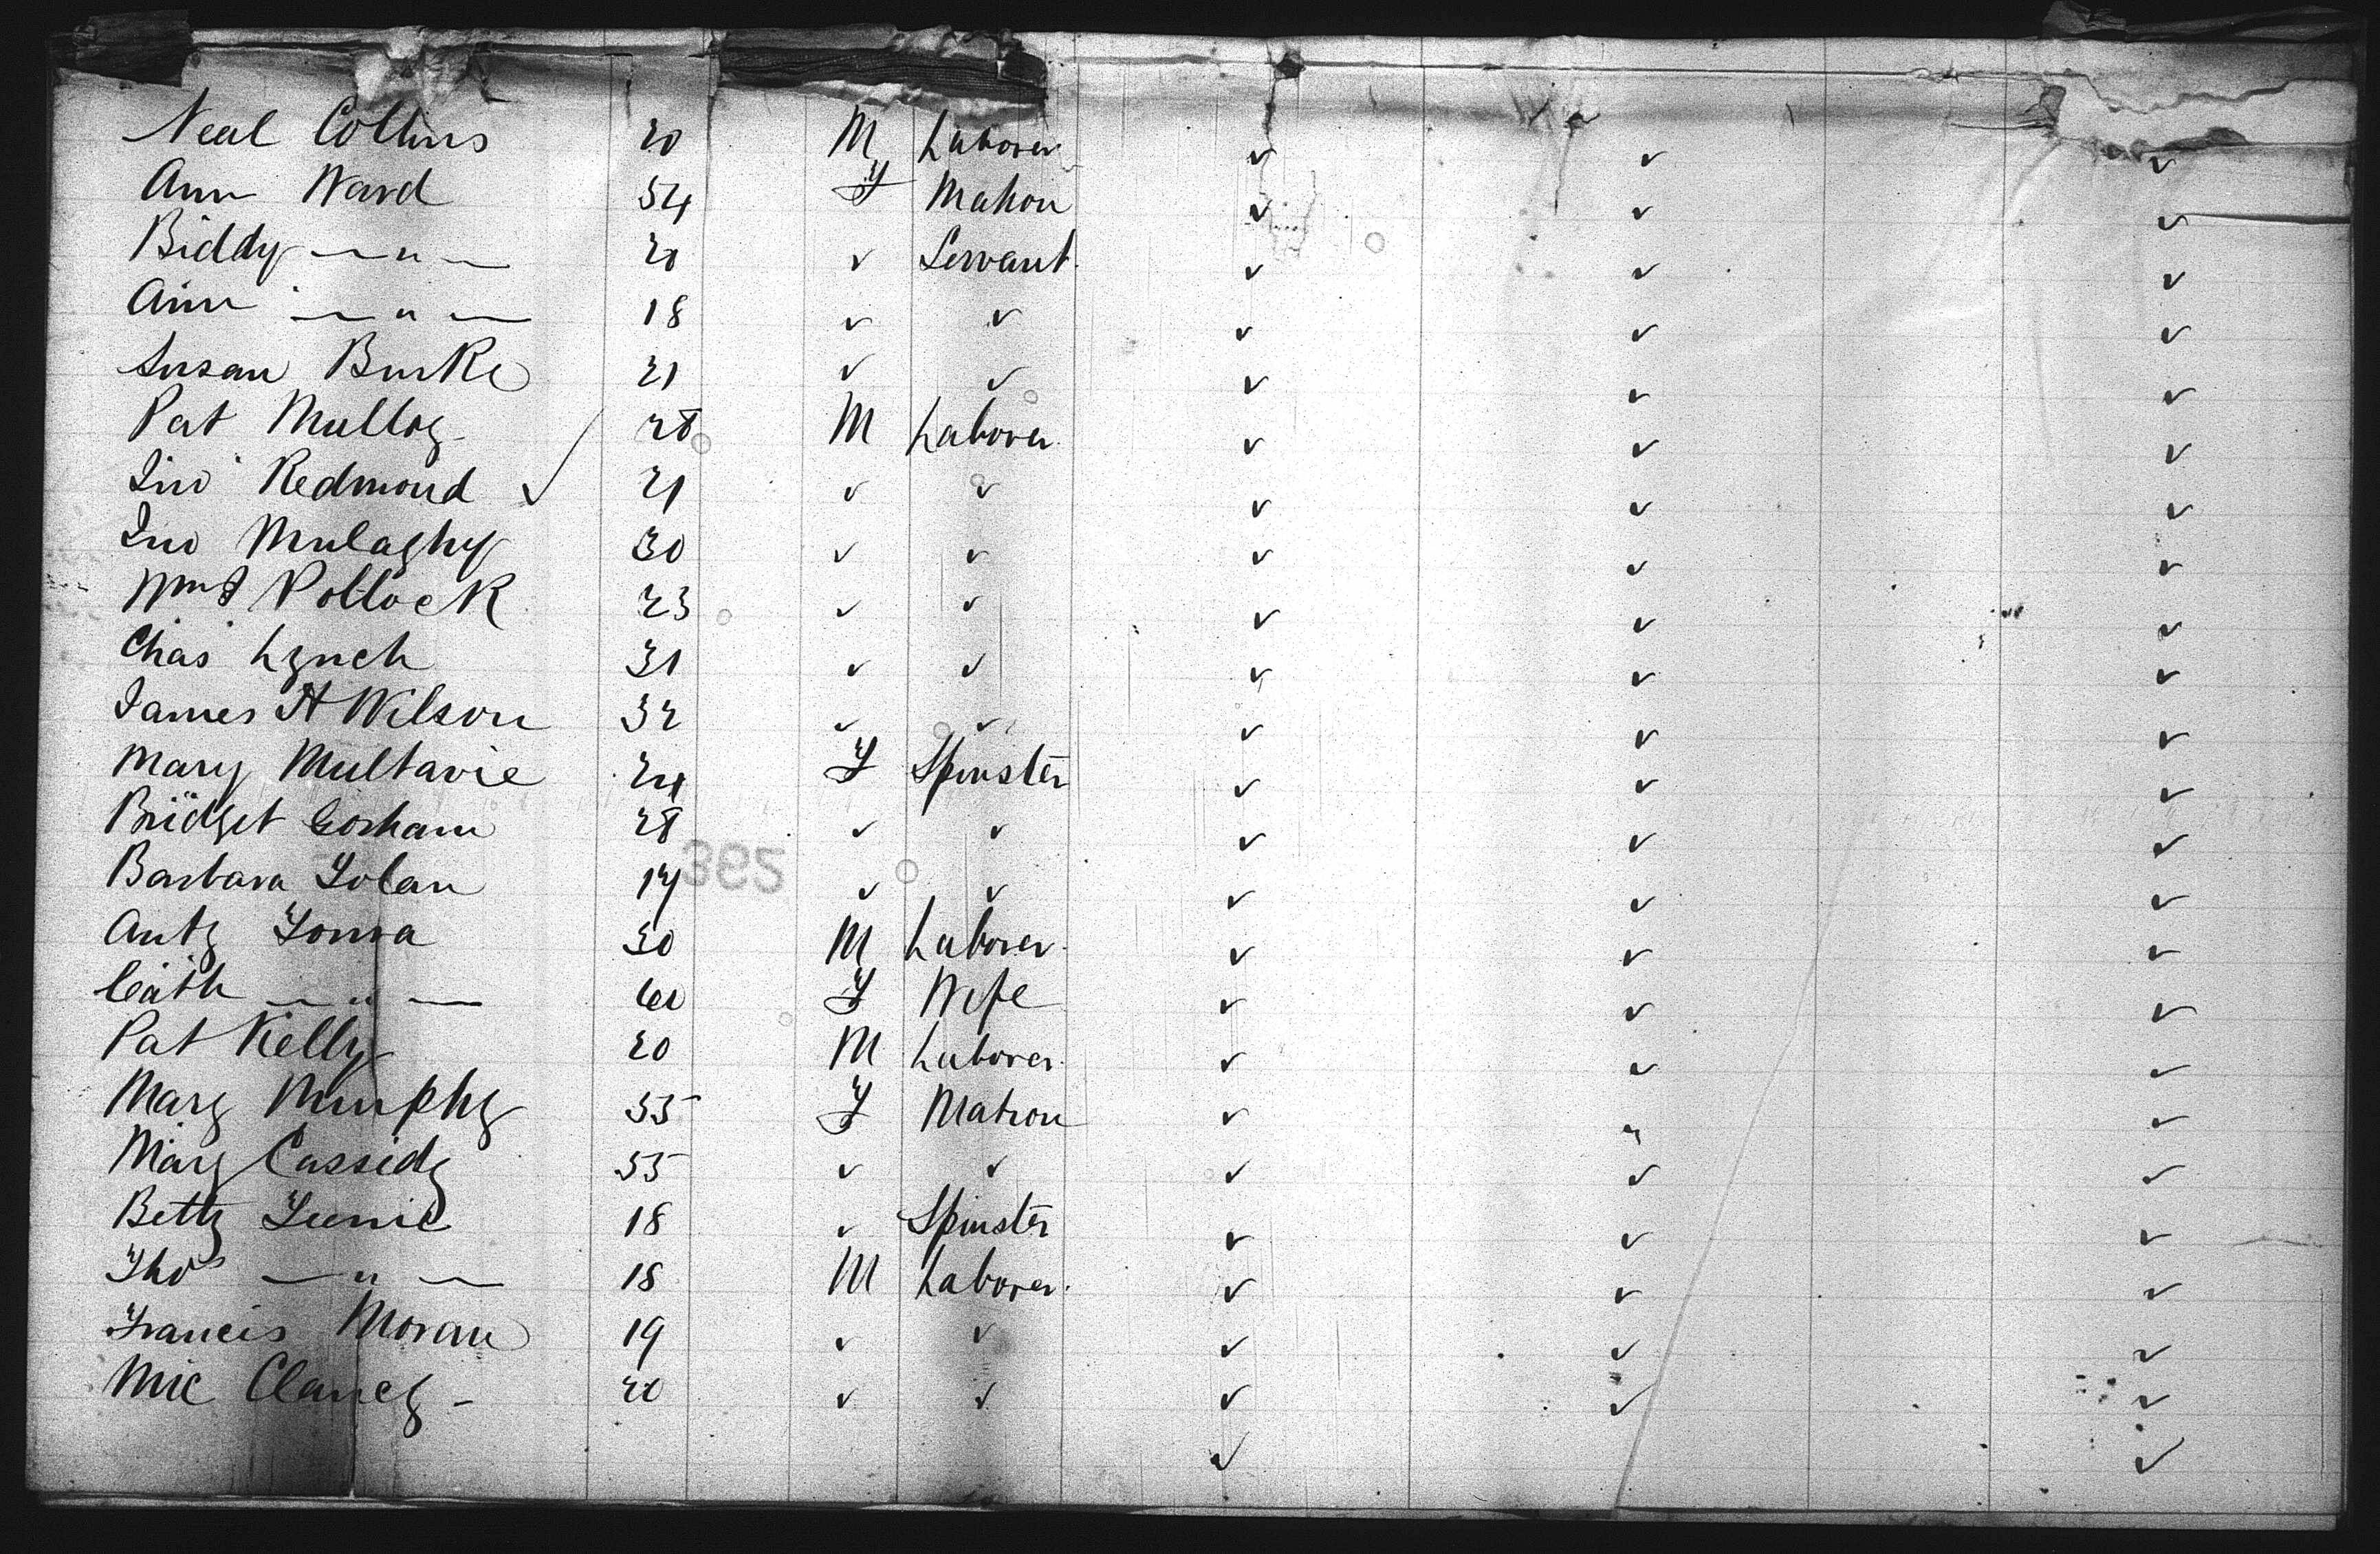 Neal Collins 20 M Laborer ✓ ✓ ✓
Ann Ward 54 F Matron ✓ ✓ ✓
Biddy — " — 20 ✓ Servant ✓ ✓ ✓
Ann — " — 18 ✓ ✓ ✓ ✓ ✓
Susan Burke 21 ✓ ✓ ✓ ✓ ✓
Pat Mulloy 28 M Laborer ✓ ✓ ✓
Jno Redmond ✓ 21 ✓ ✓ ✓ ✓ ✓
Jno Mulaghy 30 ✓ ✓ ✓ ✓ ✓
Wm Pollock 23 ✓ ✓ ✓ ✓ ✓
Chas Lynch 31 ✓ ✓ ✓ ✓ ✓
James H Wilson 32 ✓ ✓ ✓ ✓ ✓
Mary Multavie 24 F Spinster ✓ ✓ ✓
Bridget Gorham 28 ✓ ✓ ✓ ✓ ✓
Barbara Folan 17 ✓ ✓ ✓ ✓ ✓
Anty 30 M Laborer ✓ ✓ ✓
Cath — " — F Wife ✓ ✓ ✓
Pat Kelly 20 M Laborer ✓ ✓ ✓
Mary Murphy 55 F Matron ✓ ✓ ✓
Mary Cassidy 55 ✓ ✓ ✓ ✓ ✓
Betty 18 ✓ Spinster ✓ ✓ ✓
Thos — " — 18 M Laborer ✓ ✓ ✓
Francis Moran 19 ✓ ✓ ✓ ✓ ✓
Mic Clancy - 20 ✓ ✓ ✓ ✓ ✓
✓ ✓